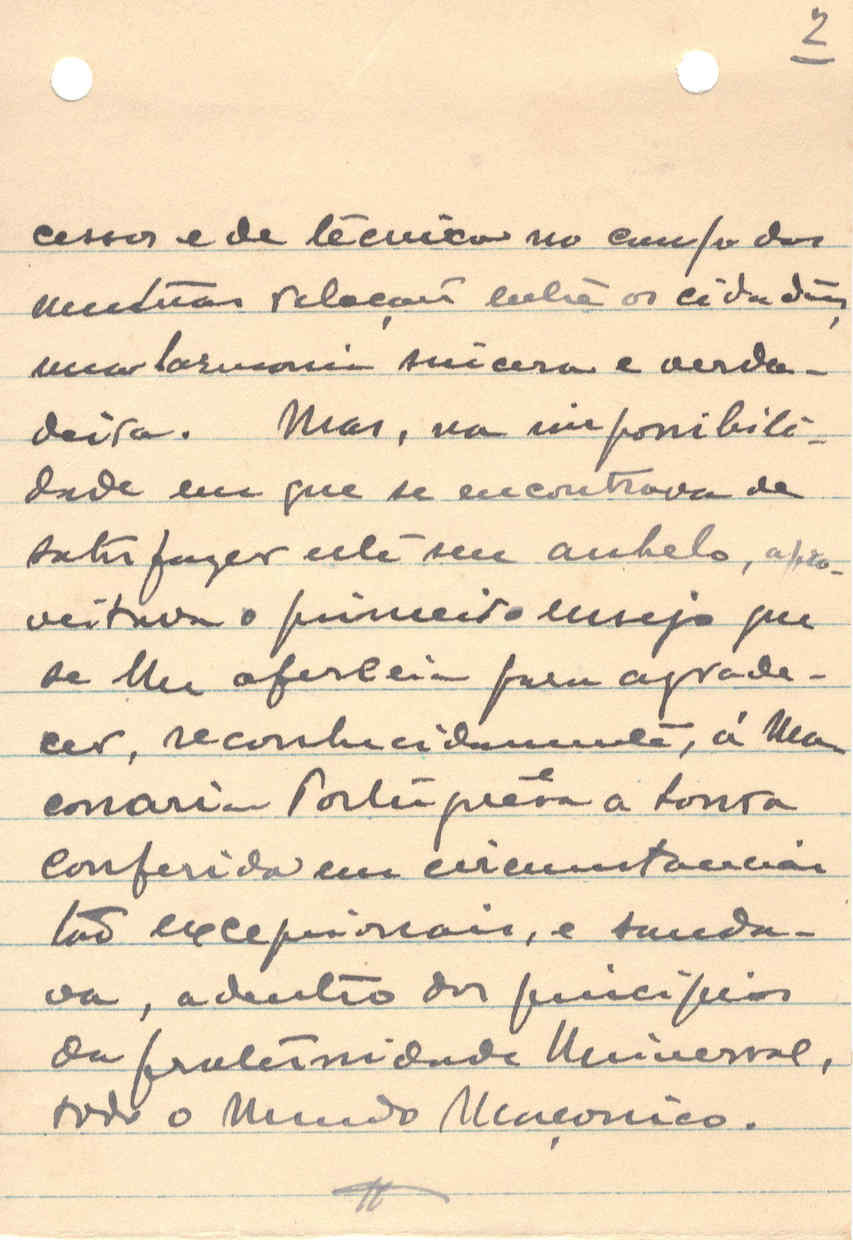 2
cessos e de técnica no campo das
mutuas relações entre os cidadãos,
uma harmonia sincera e verda-
deira. Mas, na impossibili-
dade em que se encontrava de
satisfazer este seu anhelo, apro-
veitava o primeiro ensejo que
se lhe oferecia para agrade-
cer, reconhecidamente, á Ma
çonaria Portuguêsa a honra
conferida em circunstancias
tão excepcionais, e sauda-
va, adentro dos principios
da fraternidade Universal,
todo o Mundo Maçonico.